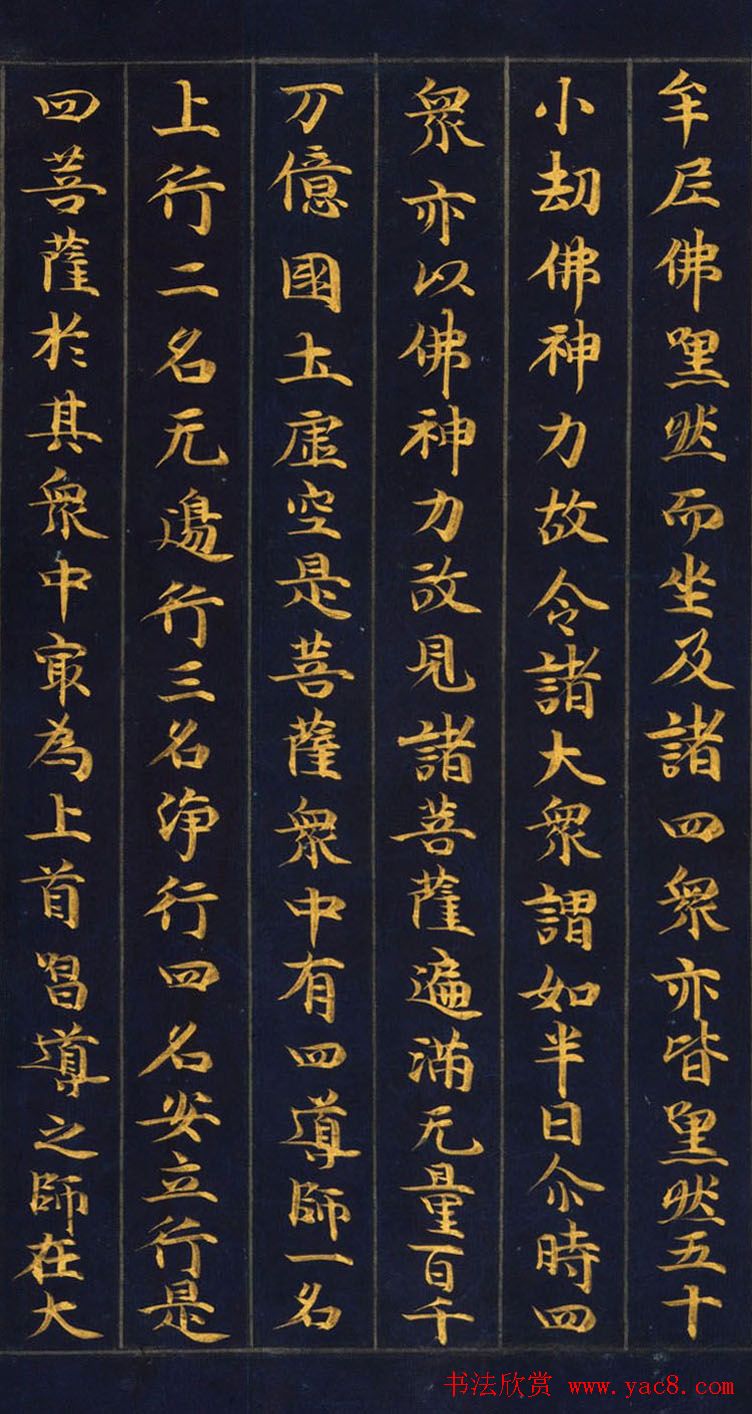 牟尼佛嘿然而坐及諸四衆亦皆嘿然五十
小劫佛神力故令諸大衆謂如半日尒時四
衆亦以佛神力故見諸菩薩遍滿无量百千
万億國土虚空是菩薩衆中有四導師一名
上行二名无邊行三名淨行四名安立行是
四菩薩於其衆中寂為上首唱導之師在大
书法欣赏 www.yac8.com